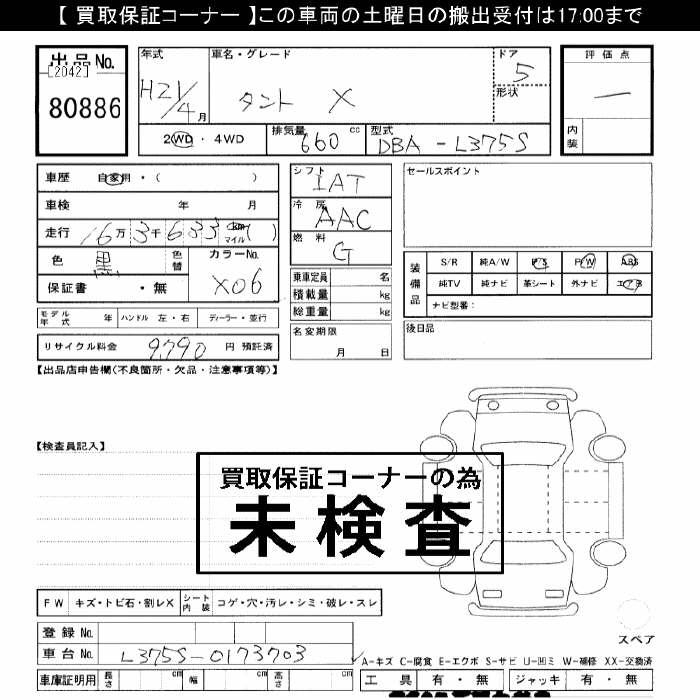 【 買取保証コーナー 】この車両の土曜日の搬出受付は17:00まで
出品No.
[2042]
80886
年式
H21/4月
車名・グレード
タント X
ドア
5
形状
評価点
—
内装
2WD ・ 4WD
排気量
660 cc
型式
DBA - L375S
車歴 自家用・( )
車検 年 月
走行 16万3千633 km マイル ( )
色 黒 色替
カラーNo.
X06
保証書 ・ 無
シフト
IAT
冷房
AAC
燃料
G
乗車定員 名
積載量 kg
総重量 kg
セールスポイント
装備品
S/R 純A/W P/S P/W ABS
純TV 純ナビ 革シート 外ナビ エアB
ナビ型番:
モデル年式 年 ハンドル 左・右 ディーラー・並行
名変期限
月 日
後日品
リサイクル料金 9,790 円 預託済
【出品店申告欄(不良箇所・欠品・注意事項等)】
【検査員記入】
買取保証コーナーの為
未検査
FW キズ・トビ石・割レX シート内装 コゲ・穴・汚レ・シミ・破レ・スレ
スペア
登録No.
車台No. L375S-0173703
A-キズ C-腐食 E-エクボ S-サビ U-凹ミ W-補修 XX-交換済
車庫証明用 長さ cm 幅 cm 高さ cm
工具 有・無 ジャッキ 有・無